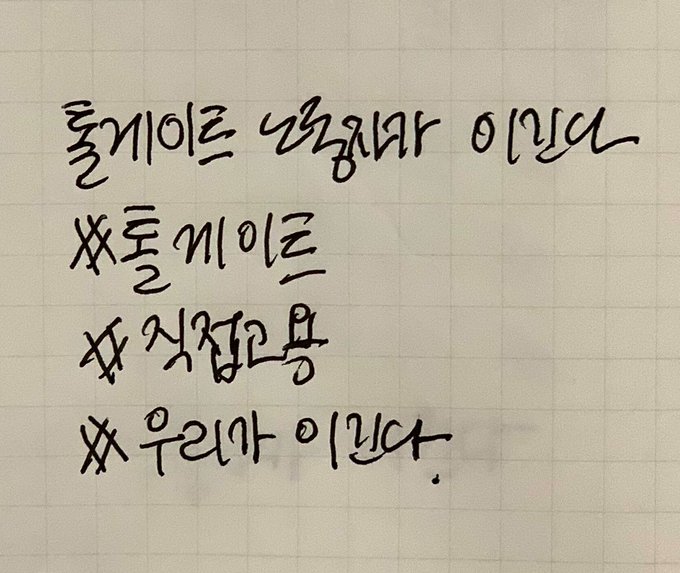 톨게이트 노동자가 이긴다
#톨게이트
#직접고용
#우리가 이긴다.